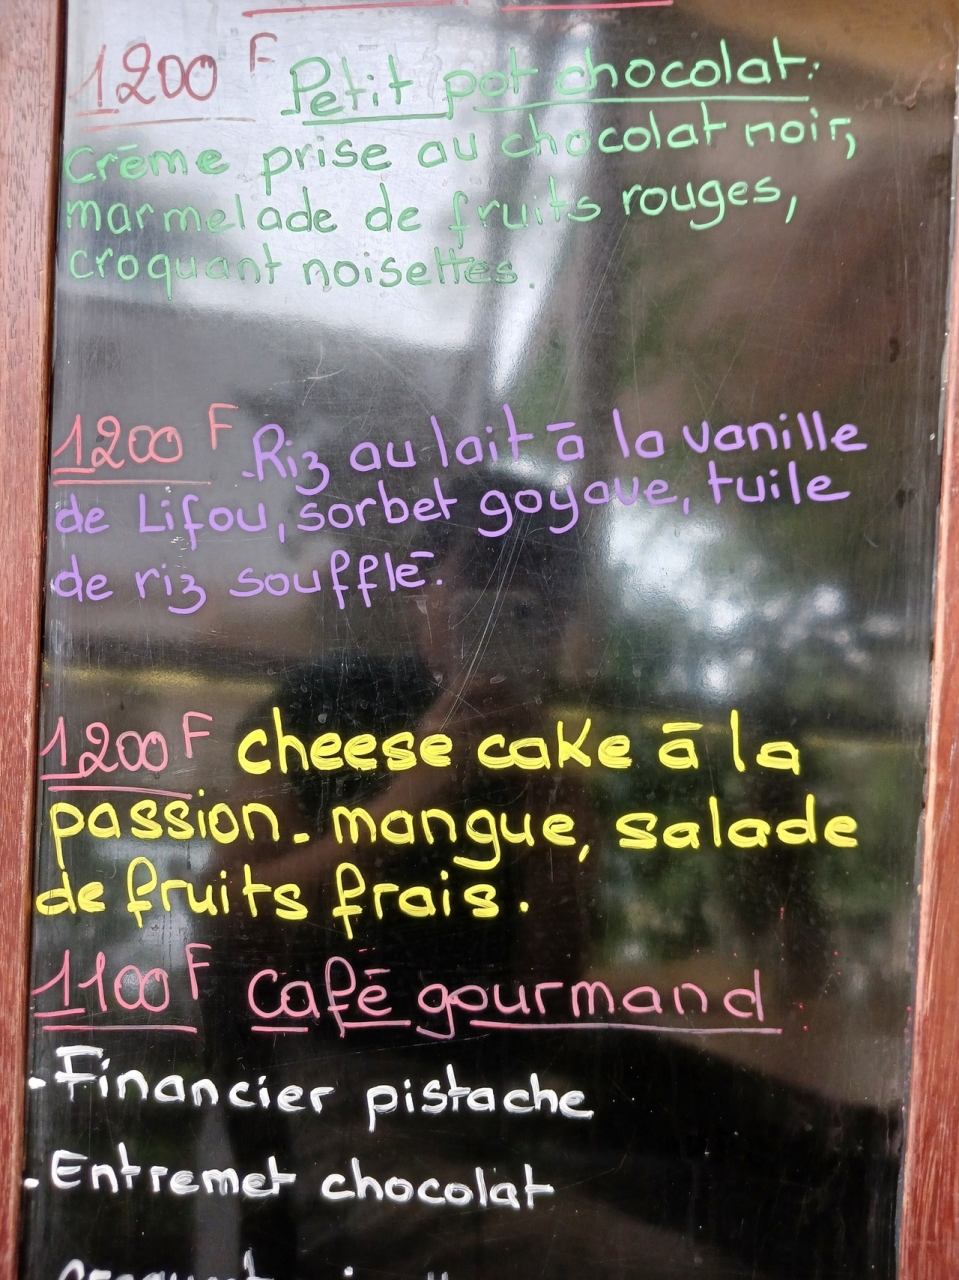 1200 F Petit pot chocolat:
Crème prise au chocolat noir,
marmelade de fruits rouges,
croquant noisettes.
1200 F Riz au lait à la vanille
de Lifou, sorbet goyave, tuile
de riz soufflé.
1200 F cheese cake à la
passion. mangue, salade
de fruits frais.
1100 F Café gourmand
. Financier pistache
. Entremet chocolat